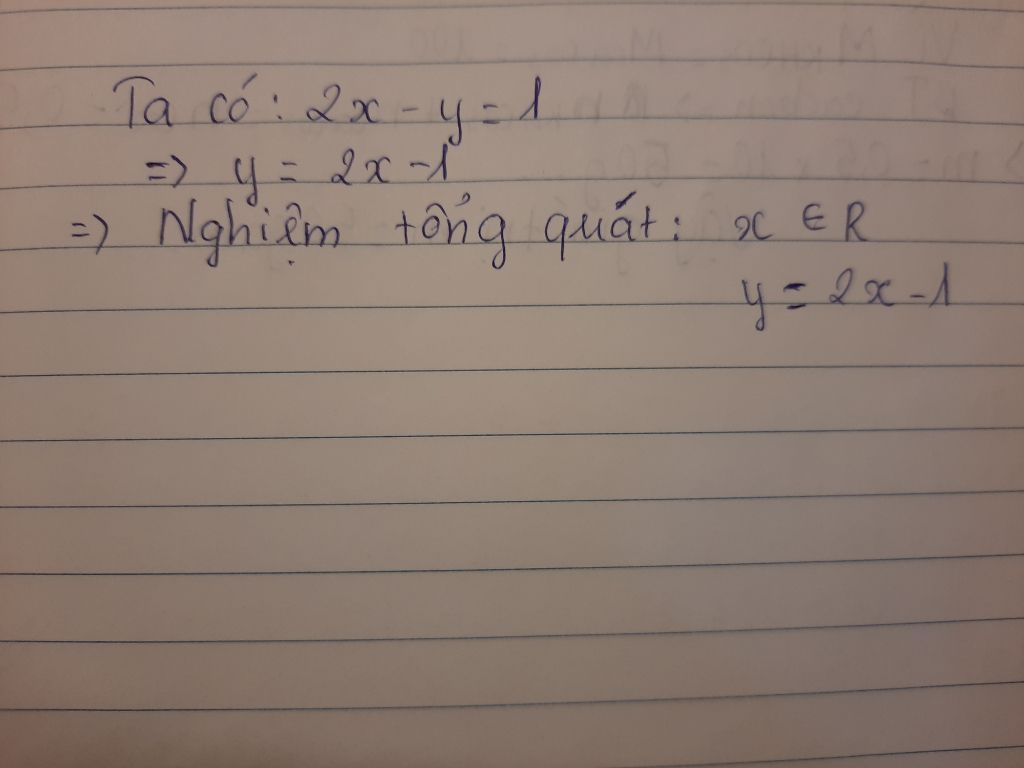 Ta có: 2x - y = 1
=> y = 2x - 1
=> Nghiệm tổng quát: x ∈ R
y = 2x - 1